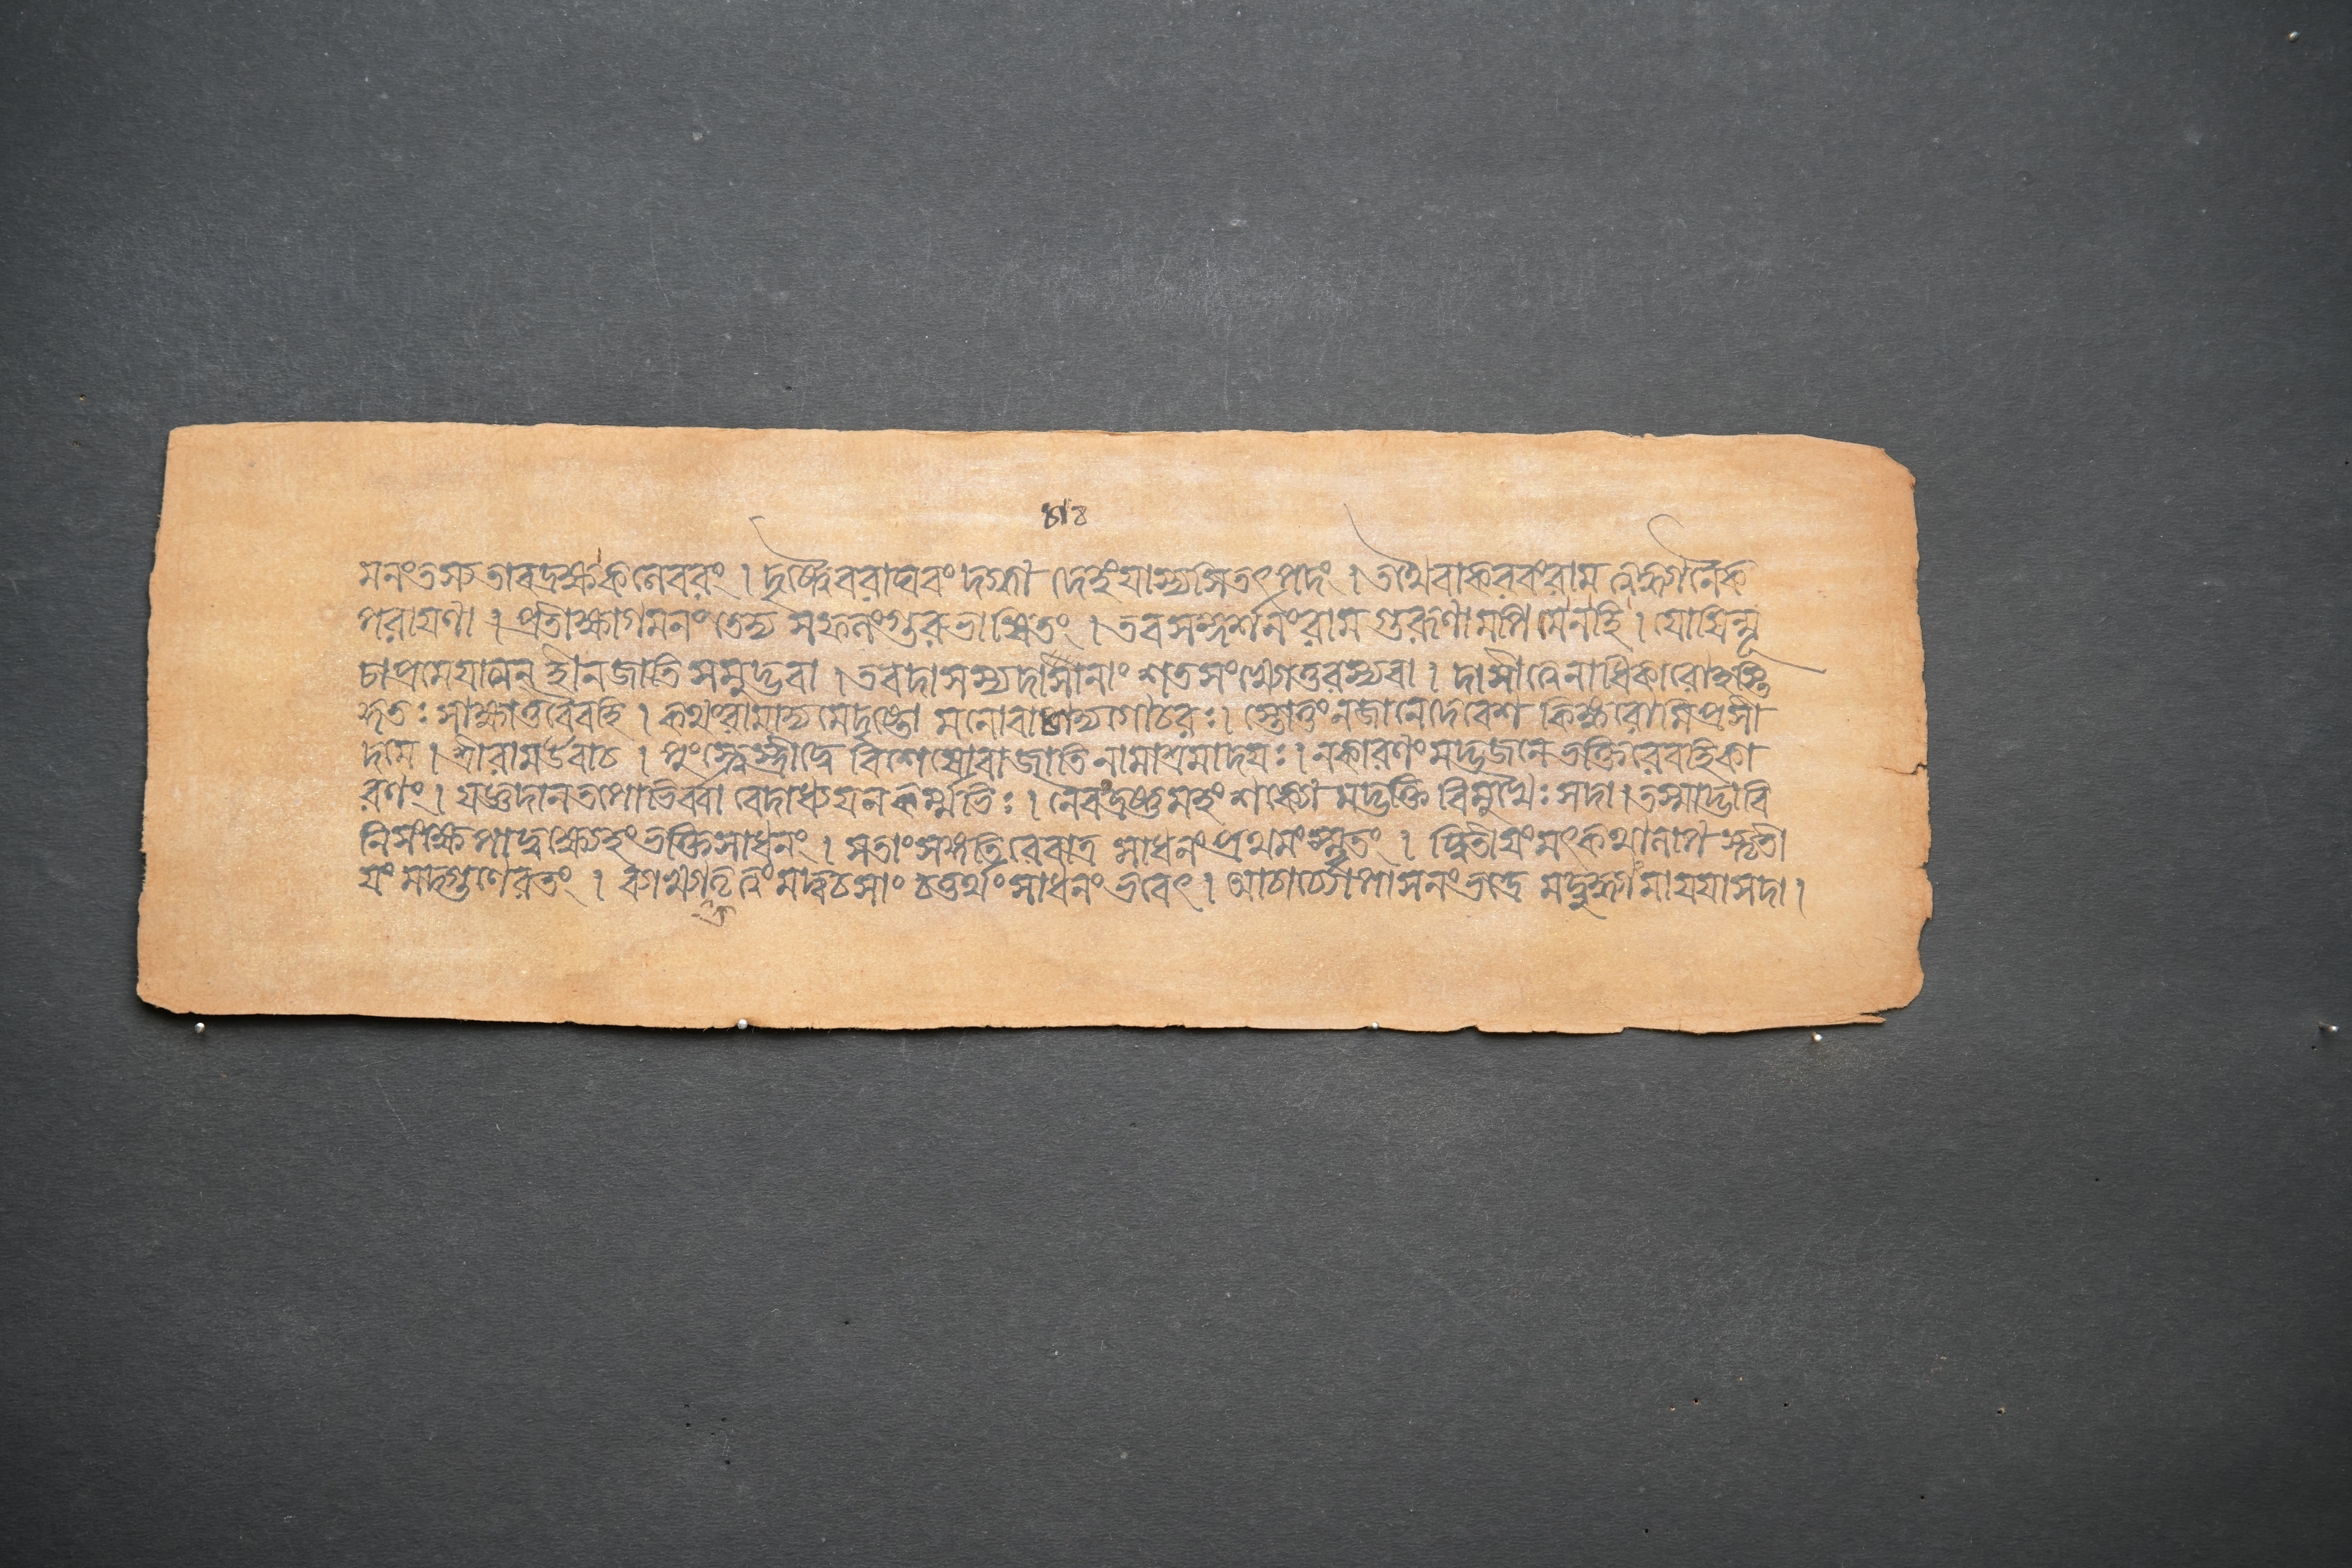 মনং তস্য তাবদ্রক্ষ কলেবরং । দৃষ্ট্বৈব রাঘবং দগ্ধ্বা দেহং যাস্যসি তৎপদং । তথৈবাকরবং রাম ত্বদ্ধ্যানৈক
পরায়ণা । প্রতীক্ষ্যাগমনং তেদ্য সফলং গুরুভাষিতং । তব সন্দর্শনং রাম গুরূণামপি মে নহি । যোষিন্মূ
ঢাপ্রমেয়াত্মন্ হীনজাতি সমুদ্ভবা । তব দাসস্য দাসানাং শতসংখ্যোত্তরস্য বা । দাসীত্বে নাধিকারোহস্তি
কুতঃ সাক্ষাত্তবৈব হি । কথং রামাদ্য মে দৃষ্টো মনোবাগগোচরঃ । স্তোতুং ন জানে দেবেশ কিঙ্করোমি প্রসী
দ মে । শ্রীরাম উবাচ । পুংস্ত্বে স্ত্রীত্বে বিশেষো বা জাতিনামাশ্রমাদয়ঃ । ন কারণং মদ্ভজনে ভক্তিরেব হি কা
রণং । যজ্ঞদানতপোভির্বা বেদাধ্যয়নকর্ম্মভিঃ । নৈব দ্রষ্টুমহং শক্যো মদ্ভক্তি বিমুখৈঃ সদা । তস্মাদ্ভাবি
নি সংক্ষেপাদ্বক্ষ্যেহং ভক্তিসাধনং । সতাং সঙ্গতিরেবাত্র সাধনং প্রথমং স্মৃতং । দ্বিতীয়ং মৎকথালাপস্তৃতী
য়ং মদ্গুণেরণং । ব্যাখ্যাতৃত্বং মদ্বচসাং চতুর্থং সাধনং ভবেৎ । আচার্য্যোপাসনং ভদ্রে মদ্বুদ্ধ্যামায়য়া সদা ।